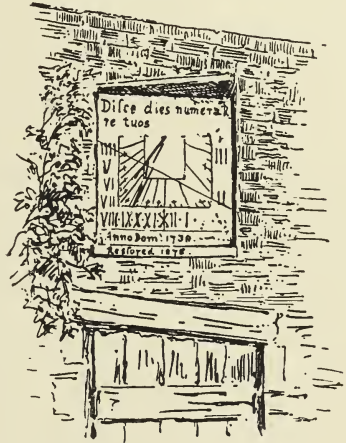 Difce dies numera
re tuos
IIII III
V II
VI
VII
VIII·IX·X·XI·XII·I
Anno Dom: 1738
Restored 1878